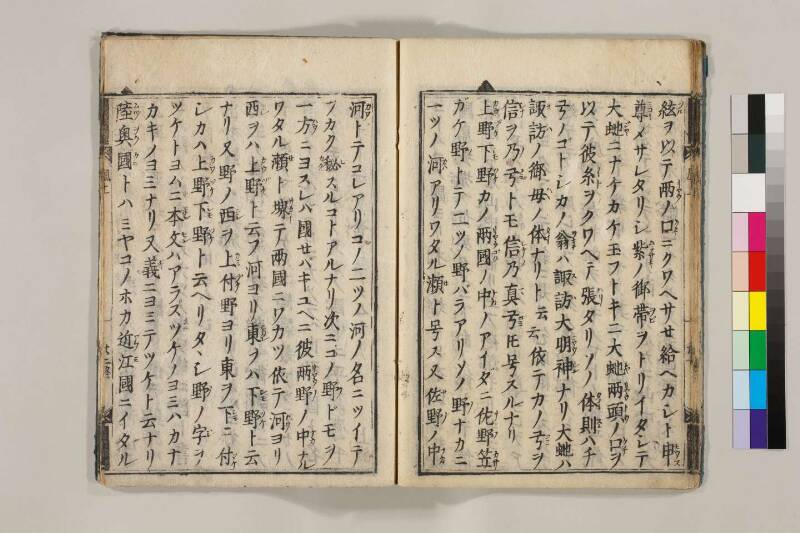 絃ヲ以テ兩ノ口ニクワヘサせ給ヘカシト申
尊メサレタリシ紫ノ御帶ヲトリイタシテ
大虵ニナケカケ玉フトキニ大虵兩頭ノ口ヲ
以テ彼糸ヲクワヘテ張タリソノ体則ハチ
弓ノコトシカノ翁ハ諏訪大明神ナリ大虵ハ
諏訪ノ御母ノ体ナリト云云依テカノ弓ヲ
信ヲ乃弓トモ信乃真弓トモ号スルナリ
上野下野カノ兩國ノ中ノアイタニ佐野笠
ガケ野トテ二ツノ野バラアリソノ野ナカニ
一ツノ河アリワタル瀬ト号ス又佐野ノ中
河トテコレアリコノ二ツノ河ノ名ニツイテ
フカク秘スルコトアルナリ次ニコノ野ドモヲ
一方ニヨスレハ國せバキユヘニ彼兩野ノ中ナル
ワタル瀬ト堺テ兩國ニワカツ依テ河ヨリ
西ヲハ上野ト云フ河ヨリ東ヲハ下野ト云
ナリ又野ノ西ヲ上付野ヨリ東ヲ下ニ付
シカハ上野下野ト云ヘリタヽシ野ノ字ヲ
ツケトヨハニ本文ハアラスツケノヨミハカナ
カキノヨミナリ又義ニヨミテツケト云ナリ
陸奥國トハミヤコノホカ近江國ニイタル